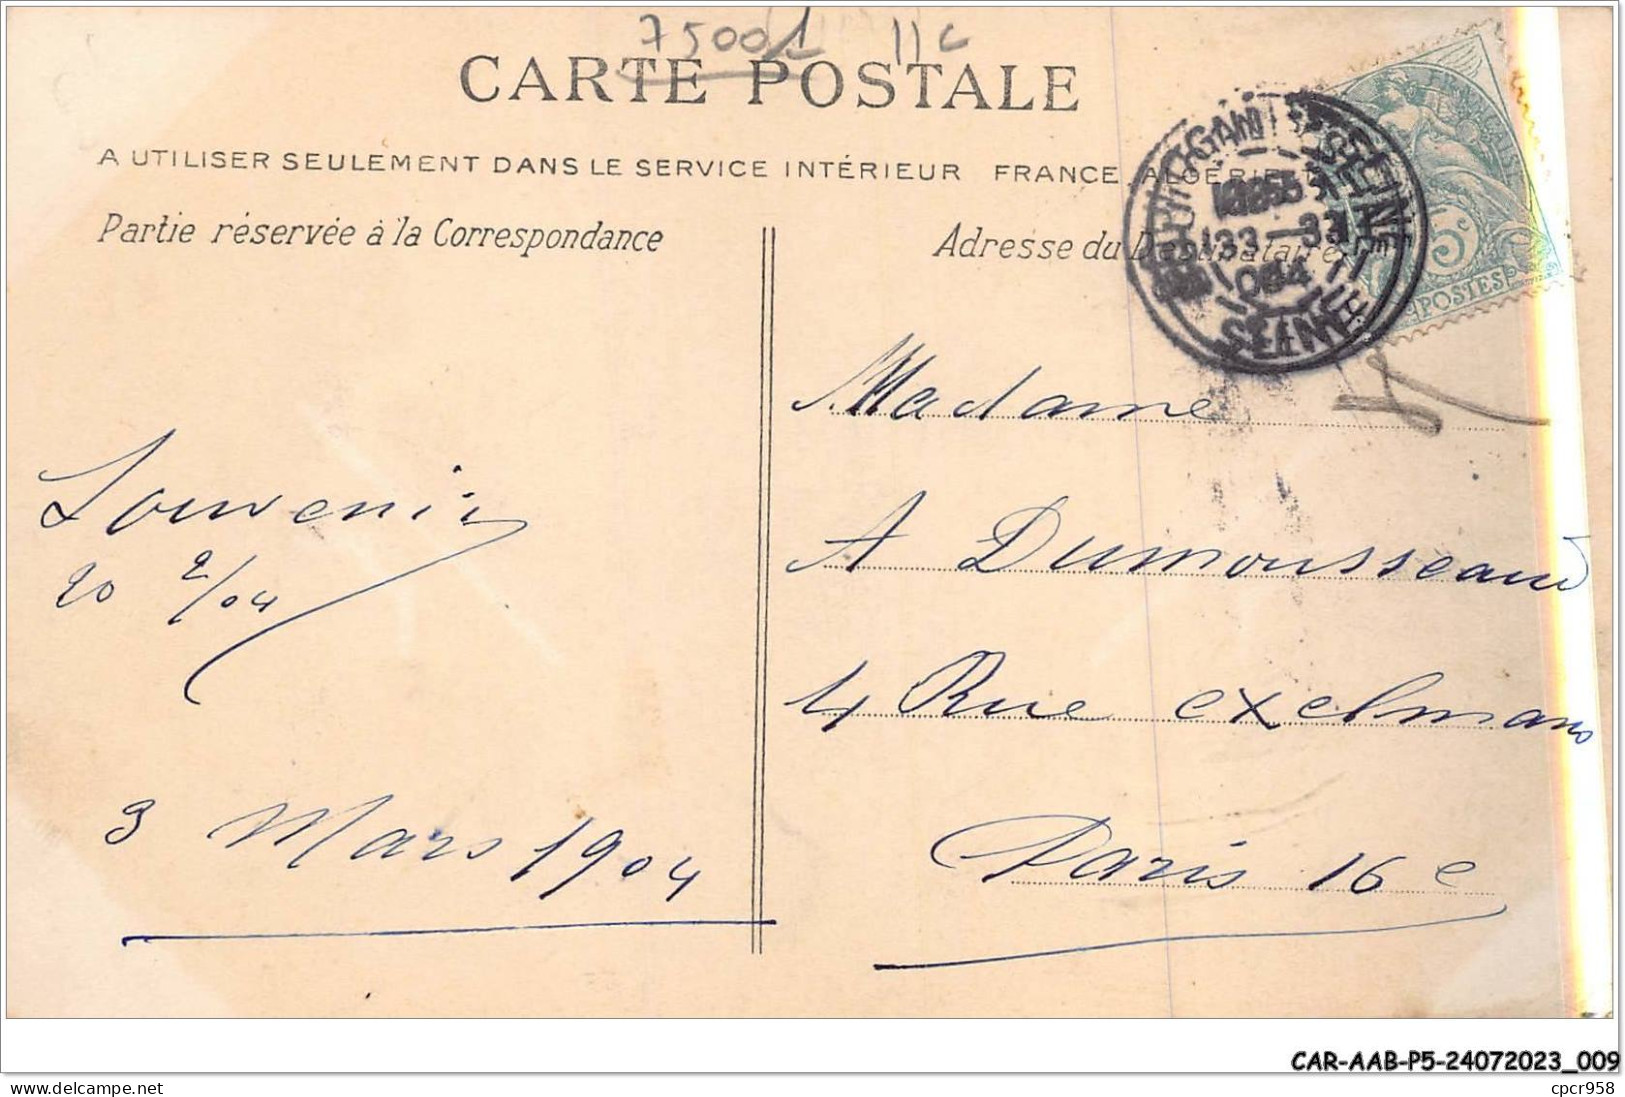 75001 11c
CARTE POSTALE
A UTILISER SEULEMENT DANS LE SERVICE INTÉRIEUR FRANCE, ALGÉRIE
Partie réservée à la Correspondance
Adresse du Destinataire
SEINE
5c
POSTES
Souvenir
20 2/04
3 Mars 1904
Madame
A Dumousseaud
4 Rue exelmans
Paris 16e
CAR-AAB-P5-24072023_009
www.delcampe.net
cpcr958